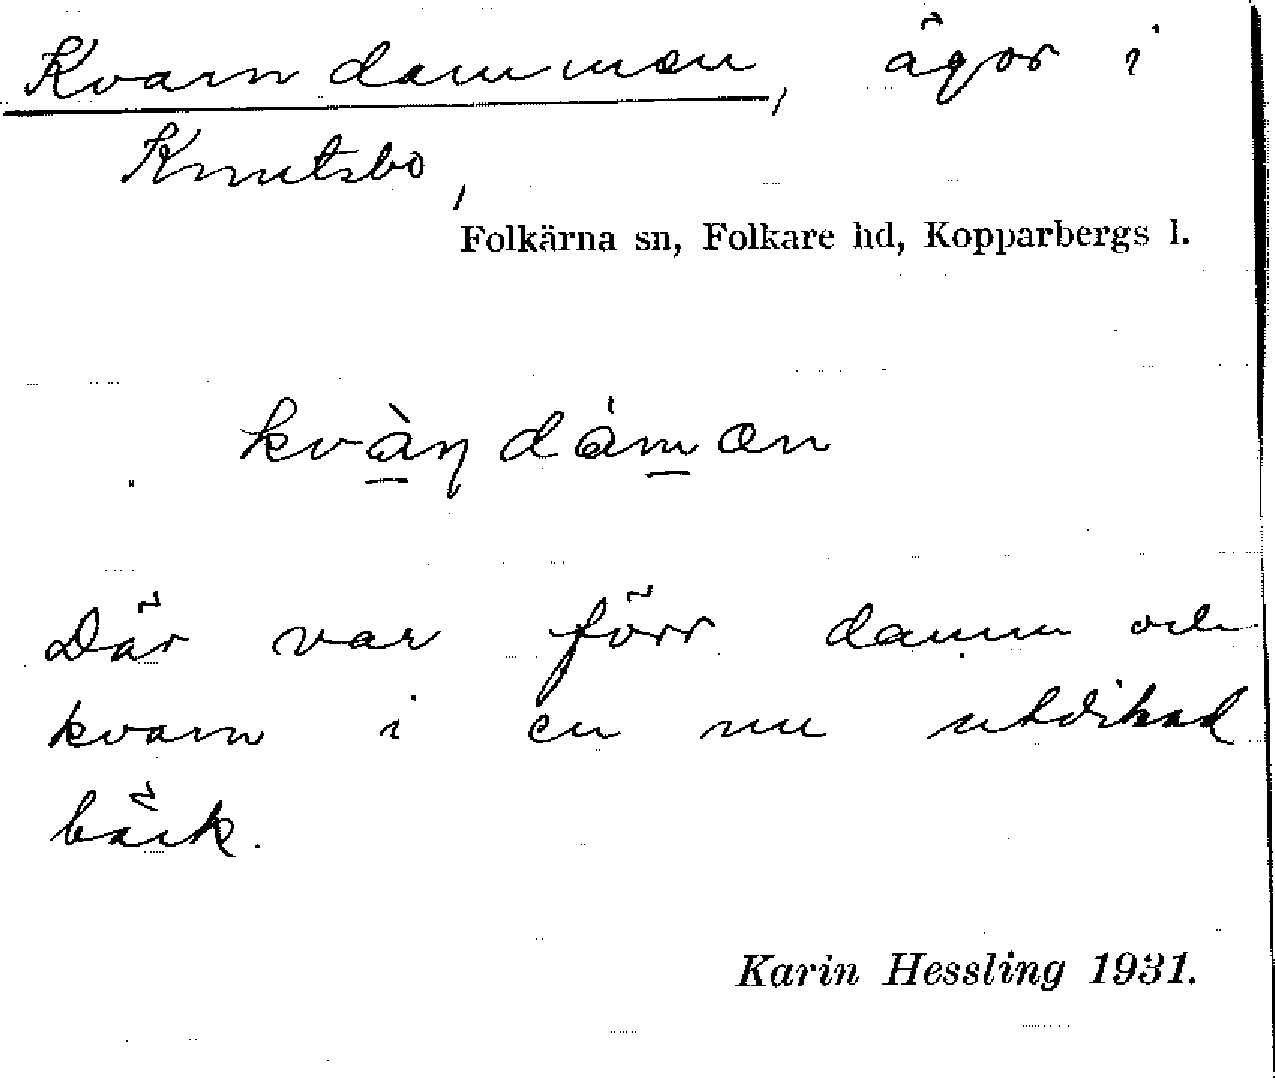 Kvarndammen, ägor i
Knutsbo,
Folkärna sn, Folkare hd, Kopparbergs l.
kvàɳdámən
Där var förr damm och
kvarn i en nu utdikad
bäck.
Karin Hessling 1931.